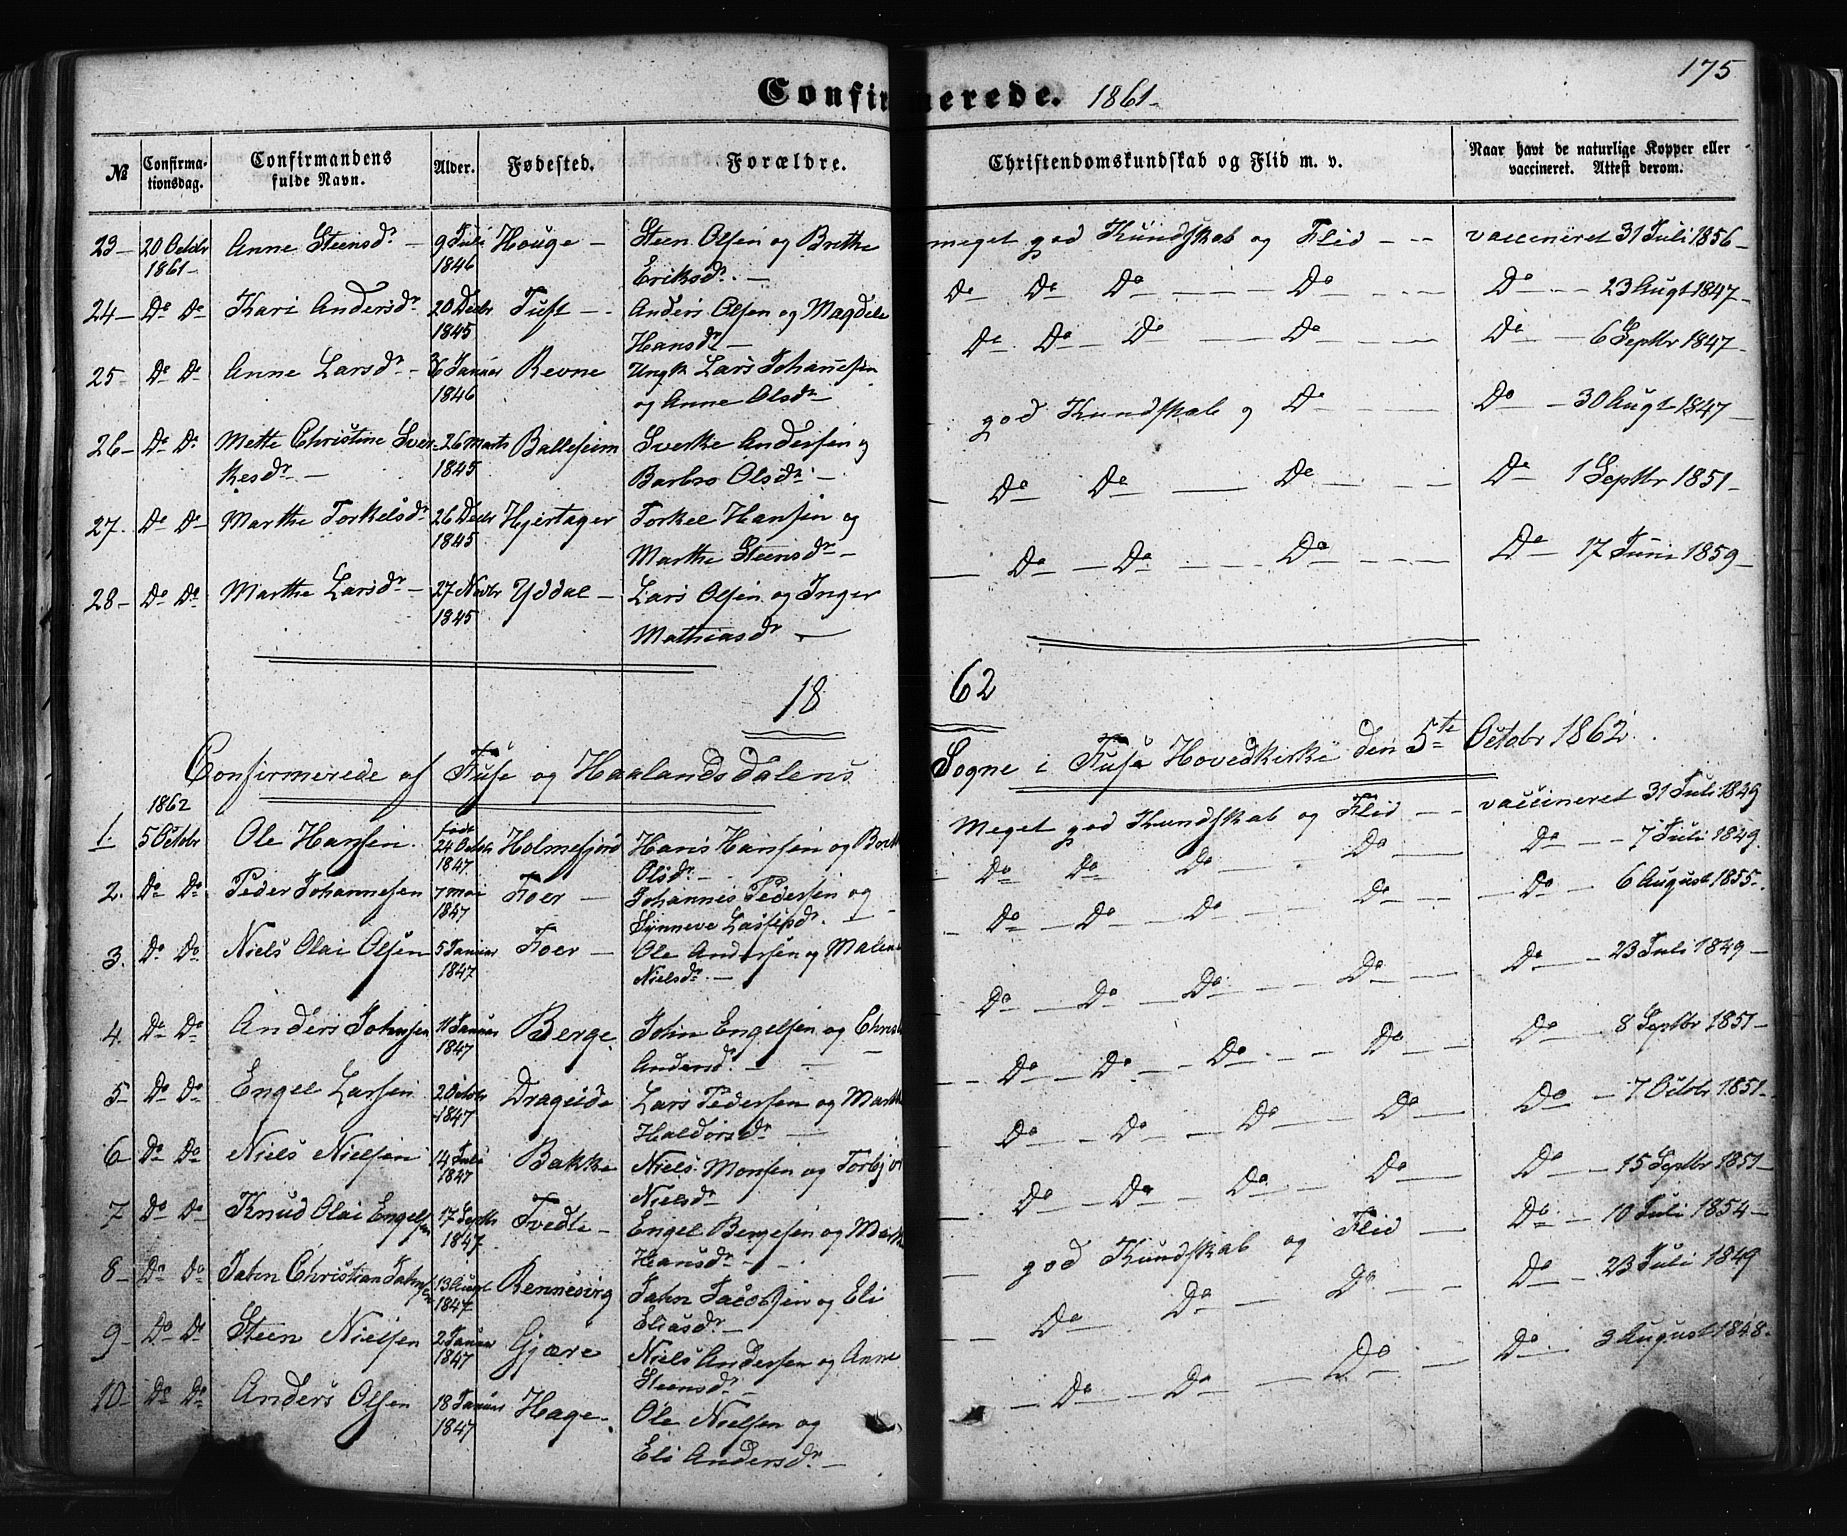 175
Confirmerede. 1861-
№ Confirma-tionsdag. Confirmandens fulde Navn. Alder. Fødested. Forældre. Christendomskundskab og Flid m. v. Naar havt de naturlige Kopper eller vaccineret. Attest derom.
23- 20 Octbr Anne Steensdr - 9 Juli Houge - Steen Olsen og Brithe meget god Kundskab og Flid - - vaccineret 31 Juli 1856-
1861- 1846 Eriksdr. -
24- Do Do Kari Andersdr 20 Decbr Tuft - - Anders Olsen og Magdele Do Do Do - - - Do - - Do - - 23 Augt 1847-
1845 Hansdr -
25- Do Do Anne Larsdr - 6 Januar Revne Ungk Lars Johannesen - Do - Do - Do - - Do - - Do - 6 Septbr 1847-
1846 og Anne Olsdr -
26- Do Do Mette Christine Sver- 26 Marts Balleseim Sverke Andersen og god Kundskab og Do - - - Do - 30 Augt 1847-
kesdr. - 1845 Barbro Olsdr. -
27. Do Do Marthe Torkelsdr 26 Decbr Hjertager Torkel Hansen og - Do Do - Do - - - Do - 1 Septbr 1851-
1845 Marthe Steensdr -
28- Do Do Marthe Larsdr - 27 Novbr Yddal - Lars Olsen og Inger - Do - Do - - - Do - - - Do - 17 Juni 1859-
1845 Mathiasdr -
1862
Confirmerede af Fuse og Haalandsdalens Sogne i Fuse Hovedkirke den 5te Octobr 1862.
1862
1. 5 Octbr Ole Hansen. født 24 Octbr Holmefjord Hans Hansen og Meget god Kundskab og Flid - - vaccineret 31 Juli 1849
1847. Olsdr. -
2. Do Do Peder Johannesen 7 Mai Foer - Johannes Pedersen og - Do Do Do - Do - Do - 7 Juli 1849.
1847 Synneve Lassesdr. -
3. Do Do Niels Olai Olsen 5 Januar Foer - Ole Andersen og Malene - Do - Do - Do - Do - - Do - 6 August 1855-.
1847 Nielsdr. -
4. Do Do Anders Johnsen 11 Januar Berge. John Engelsen og - Do - Do - Do - Do - Do - 23 Juli 1849-
1847 Andersdr. -
5- Do Do Engel Larsen 2 Octobr Drageide Lars Pedersen og - Do - Do - Do - - Do - Do - 8 Septbr 1851-
1847 Haldorsdr -
6- Do Do Niels Nielsen 14 Juli Bakke Niels Monsen og - Do - Do - Do - Do - Do - 7 Octbr 1851-
1847 Nielsdr
7 Do Do Knud Olai Engelsen 17 Septbr Tvedte - Engel Bergesen og - Do - Do - Do - Do - Do - 15 Septbr 1851-
1847 Hansdr -
8- Do Do Jahn Christian Jahnsen 13 Augt Rennesvig Jahn Jacobsen og Eli god Kundskab og Flid - Do - 10 Juli 1854-
1847. Eliasdr. -
9- Do Do Steen Nielsen 2 Januar Gjære Niels Andersen og Anne - Do - Do - Do - Do - 23 Juli 1849
1847 Steensdr. -
10- Do Do Anders Olsen 18 Januar Hage. Ole Nielsen og - Do - Do - - Do - Do - 3 August 1848.
1847 Eli Andersdr. -